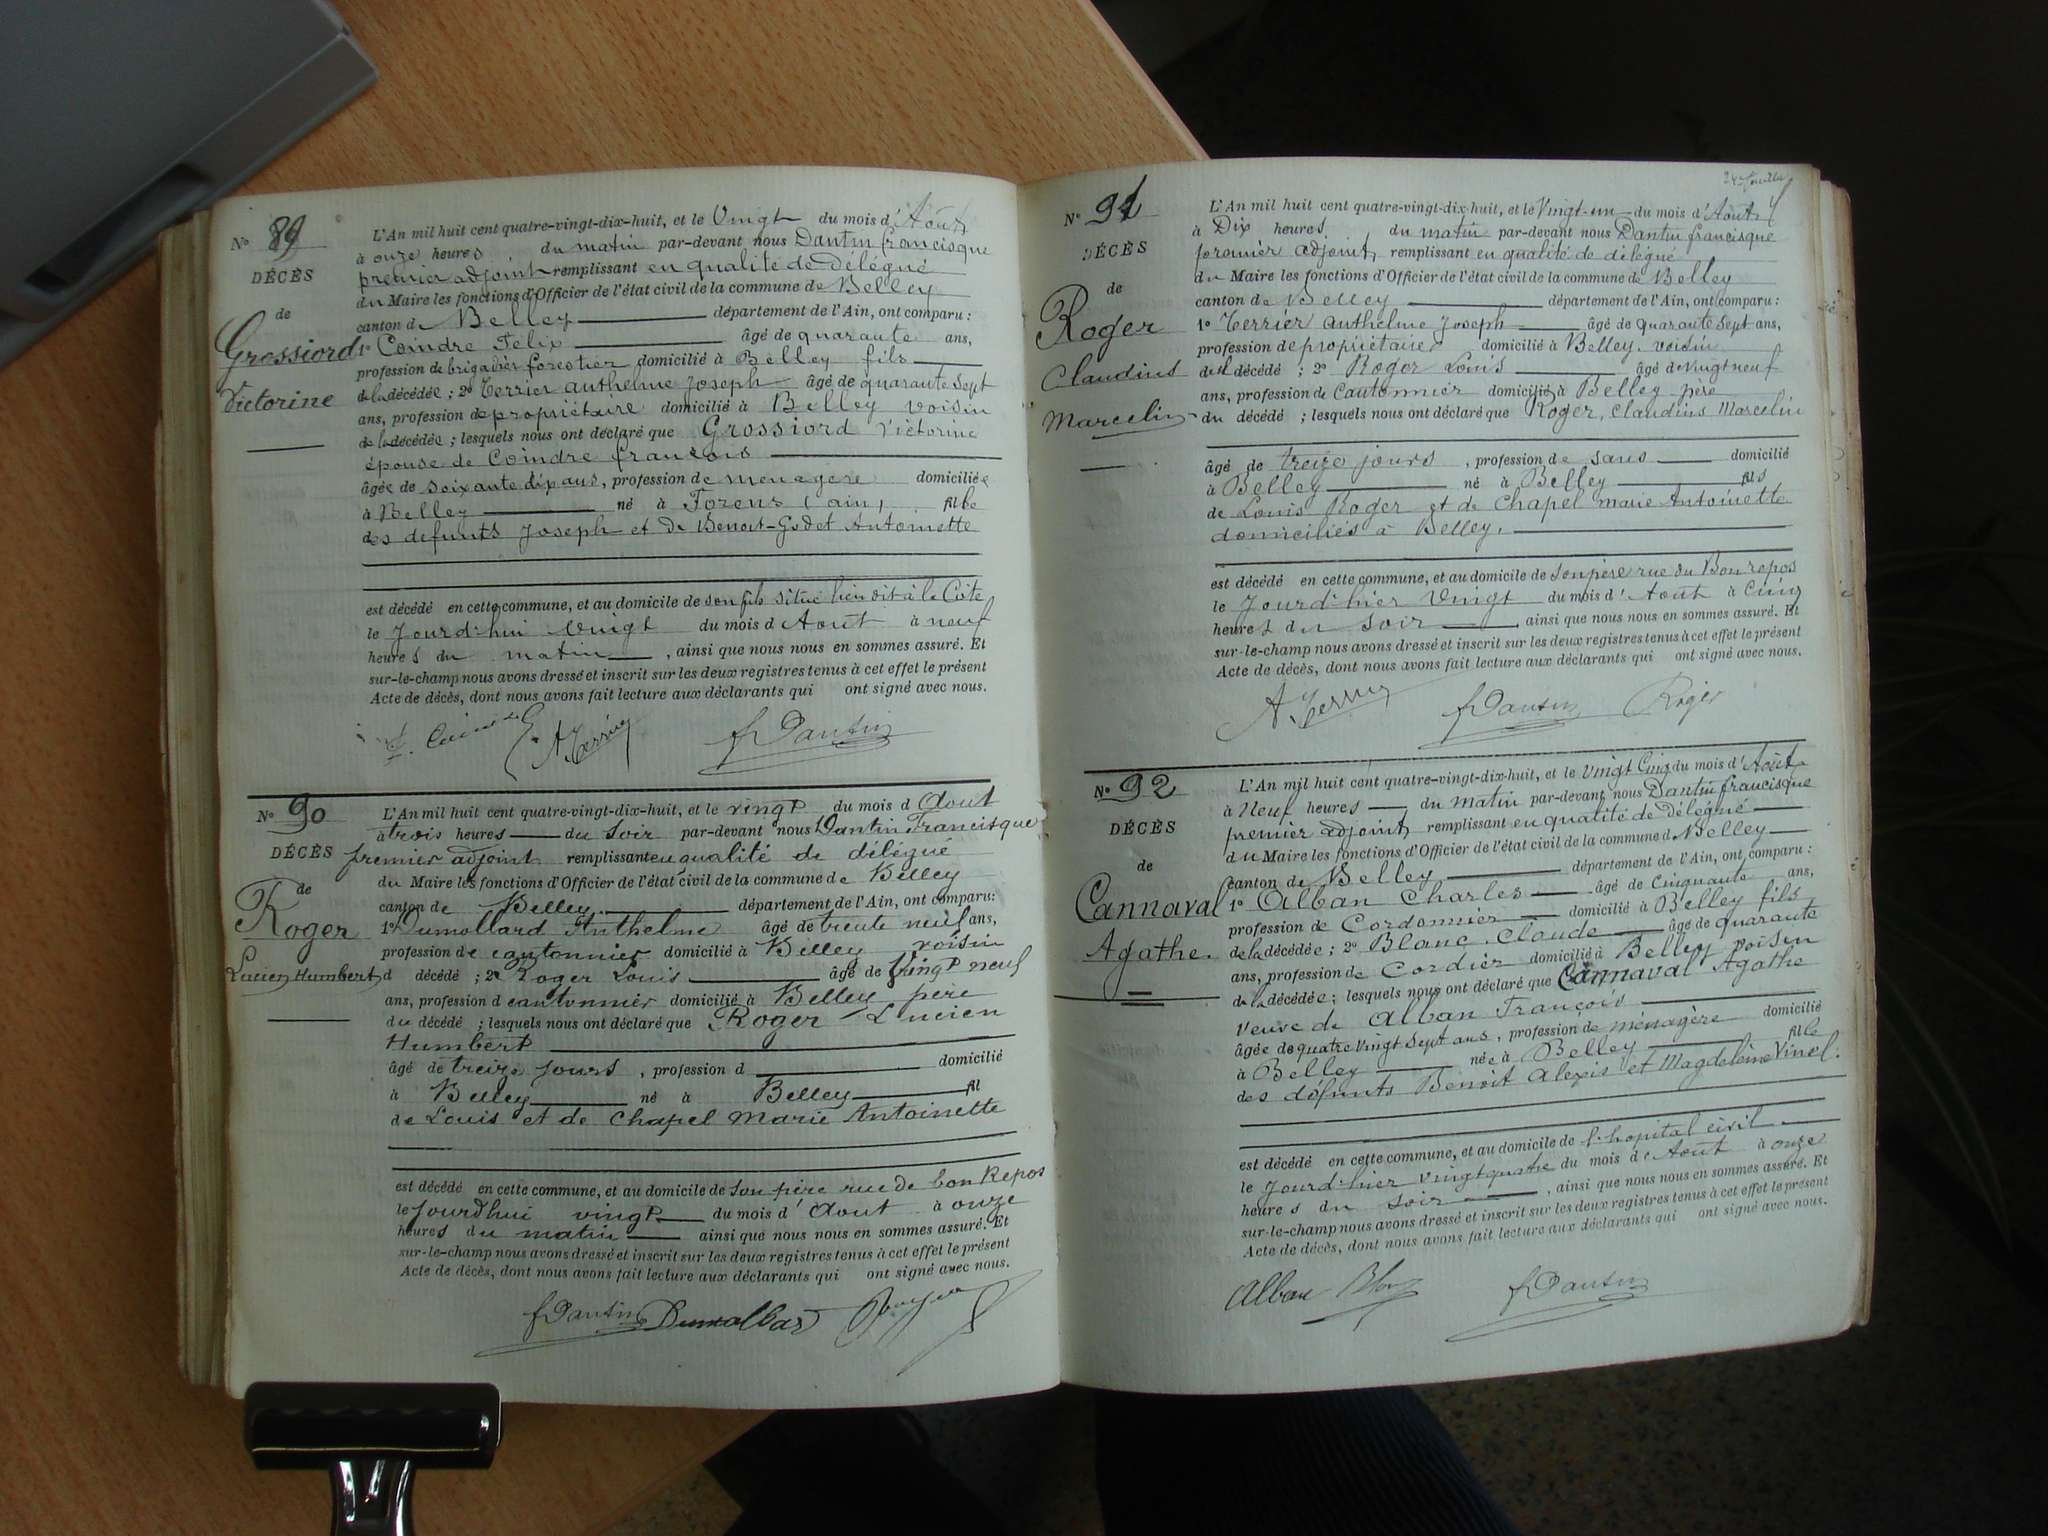 N° 89
DÉCÈS
de
Grossiord
Victorine
L'An mil huit cent quatre-vingt-dix-huit, et le Vingt du mois d'Août
à onze heures du matin par-devant nous Dantin francisque
premier adjoint remplissant en qualité de Délégué
du Maire les fonctions d'Officier de l'état civil de la commune de Belley
canton de Belley département de l'Ain, ont comparu :
1° Coindre Felix âgé de quarante ans,
profession de brigadier forestier domicilié à Belley fils
de la décédée ; 2° Terrier anthelme Joseph âgé de quarante sept
ans, profession de propriétaire domicilié à Belley voisin
de la décédée ; lesquels nous ont déclaré que Grossiord Victorine
épouse de Coindre françois
âgée de soixante dix ans, profession de menagère domiciliée
à Belley né à Forens (ain) fille
des defunts Joseph et de Benoit-Godet Antoinette
est décédé en cette commune, et au domicile de son fils situé lieu dit à la Côte
le Jourd'hui Vingt du mois d Août à neuf
heures du matin, ainsi que nous nous en sommes assuré. Et
sur-le-champ nous avons dressé et inscrit sur les deux registres tenus à cet effet le présent
Acte de décès, dont nous avons fait lecture aux déclarants qui ont signé avec nous.
A. Terrier fDantin
N° 90
DÉCÈS
de
Roger
Lucien Humbert
L'An mil huit cent quatre-vingt-dix-huit, et le vingt du mois d Aout
à trois heures du soir par-devant nous Dantin Francisque
premier adjoint remplissant en qualité de délégué
du Maire les fonctions d'Officier de l'état civil de la commune de Belley
canton de Belley département de l'Ain, ont comparu:
1° Dumollard Anthelme âgé de trente neuf ans,
profession de cantonnier domicilié à Belley voisin
d décédé ; 2° Roger Louis âgé de Vingt neuf
ans, profession d cantonnier domicilié à Belley père
du décédé ; lesquels nous ont déclaré que Roger Lucien
Humbert
âgé de treize jours, profession d domicilié
à Belley né à Belley fil
de Louis et de Chapel Marie Antoinette
est décédé en cette commune, et au domicile de son père rue de bon Repos
le jourdhui vingt du mois d'Aout à onze
heures du matin ainsi que nous nous en sommes assuré. Et
sur-le-champ nous avons dressé et inscrit sur les deux registres tenus à cet effet le présent
Acte de décès, dont nous avons fait lecture aux déclarants qui ont signé avec nous.
fDantin Dumollard Roger
N° 91
DÉCÈS
de
Roger
Claudius
Marcelin
L'An mil huit cent quatre-vingt-dix-huit, et le Vingt-un du mois d'Août
à Dix heures du matin par-devant nous Dantin francisque
premier adjoint, remplissant en qualité de délégué
du Maire les fonctions d'Officier de l'état civil de la commune de Belley
canton de Belley département de l'Ain, ont comparu :
1° Terrier anthelme Joseph âgé de quarante sept ans,
profession de propriétaire domicilié à Belley. voisin
du décédé ; 2° Roger Louis âgé de vingt neuf
ans, profession de Cantonnier domicilié à Belley père
du décédé ; lesquels nous ont déclaré que Roger, Claudius Marcelin
âgé de treize jours, profession de sans domicilié
à Belley né à Belley fils
de Louis Roger et de Chapel marie Antoinette
domiciliés à Belley.
est décédé en cette commune, et au domicile de son père rue du Bon repos
le Jourd'hier Vingt du mois d'Aout à Cinq
heures du soir, ainsi que nous nous en sommes assuré. Et
sur-le-champ nous avons dressé et inscrit sur les deux registres tenus à cet effet le présent
Acte de décès, dont nous avons fait lecture aux déclarants qui ont signé avec nous.
A. Terrier fDantin Roger
N° 92
DÉCÈS
de
Cannaval
Agathe.
L'An mil huit cent quatre-vingt-dix-huit, et le Vingt Cinq du mois d'Août
à Neuf heures du matin par-devant nous Dantin francisque
premier adjoint, remplissant en qualité de délégué
du Maire les fonctions d'Officier de l'état civil de la commune d Belley
canton de Belley département de l'Ain, ont comparu :
1° Alban Charles âgé de Cinquante ans,
profession de Cordonnier domicilié à Belley fils
de la décédée ; 2° Blanc Claude âgé de quarante
ans, profession de Cordier domicilié à Belley voisin
de la décédée ; lesquels nous ont déclaré que Cannaval Agathe
Veuve de Alban François
âgée de quatre vingt sept ans, profession de ménagère domicilié
à Belley née à Belley fille
des défunts Benoit Alexis et Magdeleine Vinel.
est décédé en cette commune, et au domicile de l'hopital civil
le Jourd'hier vingt quatre du mois de Aout à onze
heures du soir, ainsi que nous nous en sommes assuré. Et
sur-le-champ nous avons dressé et inscrit sur les deux registres tenus à cet effet le présent
Acte de décès, dont nous avons fait lecture aux déclarants qui ont signé avec nous.
Alban Blanc fDantin